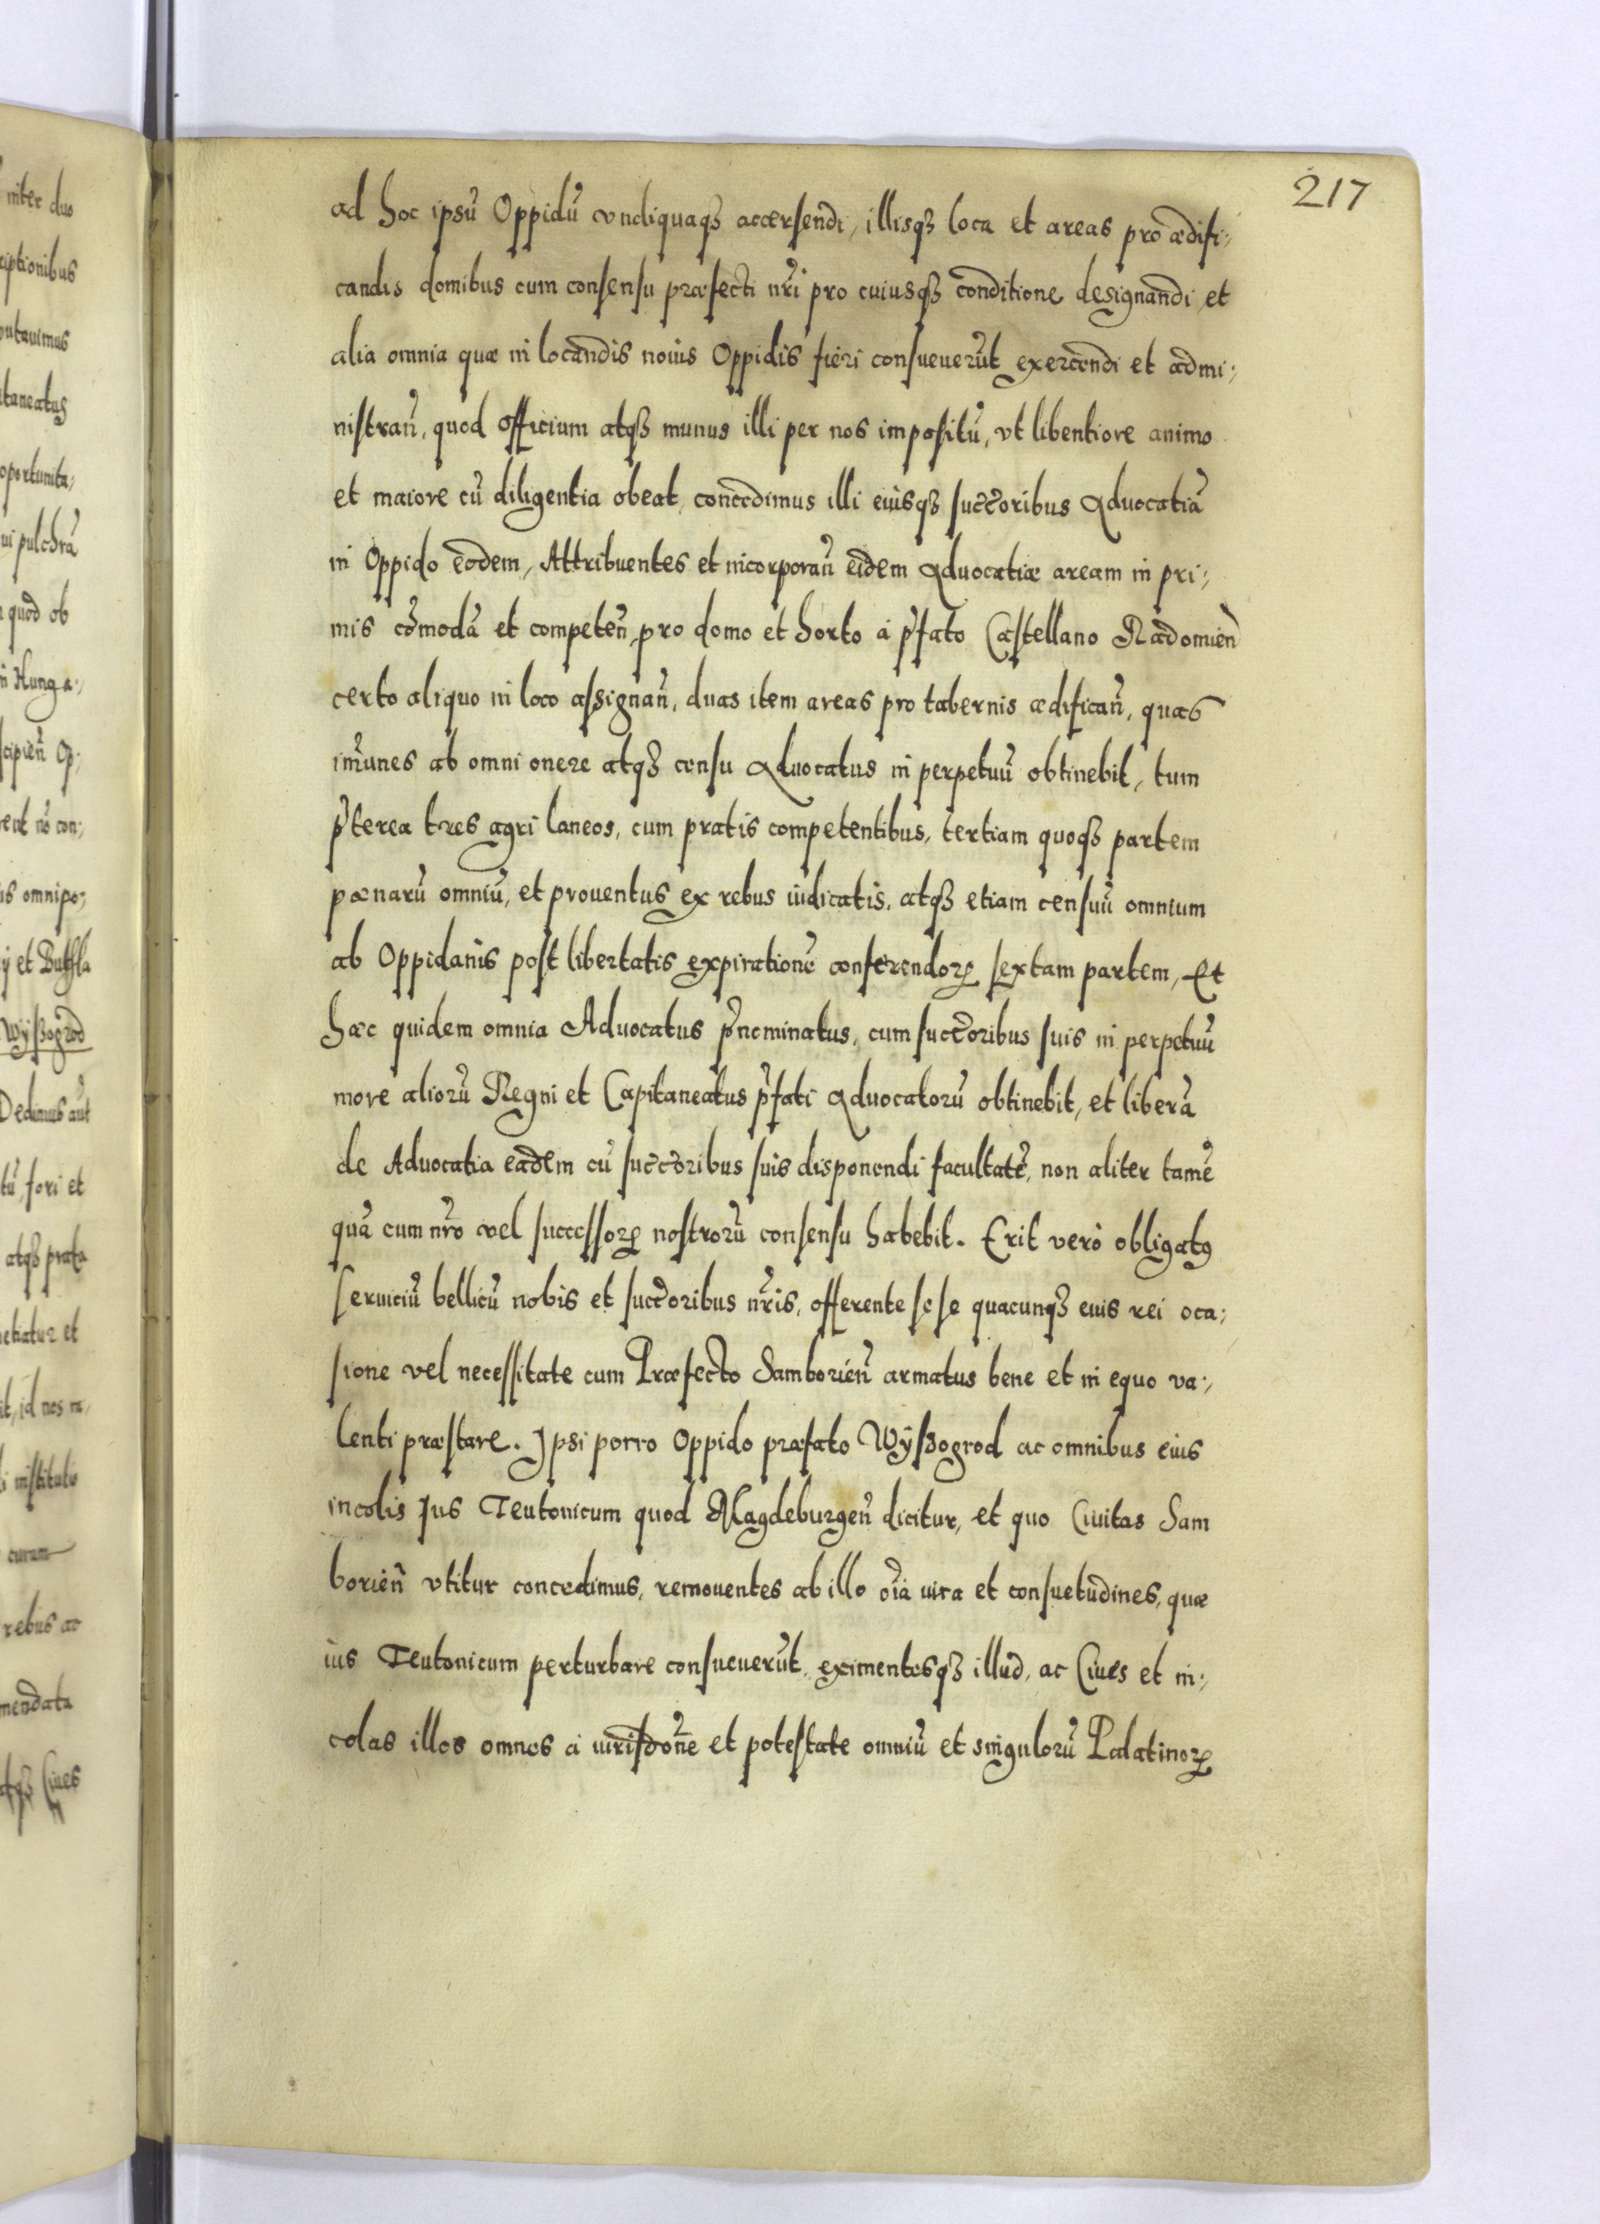 217
ad hoc ipsũ Oppidũ vndiquaqꝫ accersendi, illisqꝫ loca et areas pro ædifi;
candis domibus cum consensu præfecti nr̃i pro cuiusqꝫ conditione designandi, et
alia omnia quæ in locandis nouis Oppidis fieri consueuerũt exercendi et admi;
nistran̄, quod officium atqꝫ munus illi per nos impositũ, vt libentiore animo
et maiore cũ diligentia obeat, concedimus illi eiusqꝫ succ̃oribus Aduocatiã
in Oppido eodem, Attribuentes et incorporan̄ eidem Aduocatiæ aream in pri;
mis cõmodã et competen̄ pro domo et horto a p̃fato Castellano Radomien̄
certo aliquo in loco assignan̄, duas item areas pro tabernis ædifican̄, quas
im̃unes ab omni onere atqꝫ censu Aduocatus in perpetuũ obtinebit, tum
p̃terea tres agri laneos, cum pratis competentibus, tertiam quoqꝫ partem
pœnarũ omniũ, et prouentus ex rebus iudicatis, atqꝫ etiam censuũ omnium
ab Oppidanis post libertatis expirationẽ conferendoꝝ sextam partem, Et
hæc quidem omnia Aduocatus p̃nominatus, cum succ̃oribus suis in perpetuũ
more aliorũ Regni et Capitaneatus p̃fati Aduocatorũ obtinebit, et liberã
de Aduocatia eadem cũ succ̃oribus suis disponendi facultatẽ, non aliter tamẽ
quã cum nr̃o vel successoꝝ nostrorũ consensu habebit. Erit vero obligatꝰ
seruiciũ bellicũ nobis et succ̃oribus nr̃is, offerente sese quacunqꝫ eius rei oca;
sione vel necessitate cum Præfecto Samborien̄ armatus bene et in equo va;
lenti præstare. Ipsi porro Oppido præfato Wÿszogrod ac omnibus eius
incolis Jus Teutonicum quod Magdeburgen̄ dicitur, et quo Ciuitas Sam
borien̄ vtitur concedimus, remouentes ab illo oĩa iura et consuetudines, quæ
ius Teutonicum perturbare consueuerũt, eximentesqꝫ illud, ac Ciues et in;
colas illos omnes a iurisdõne et potestate omniũ et singulorũ Palatinoꝝ